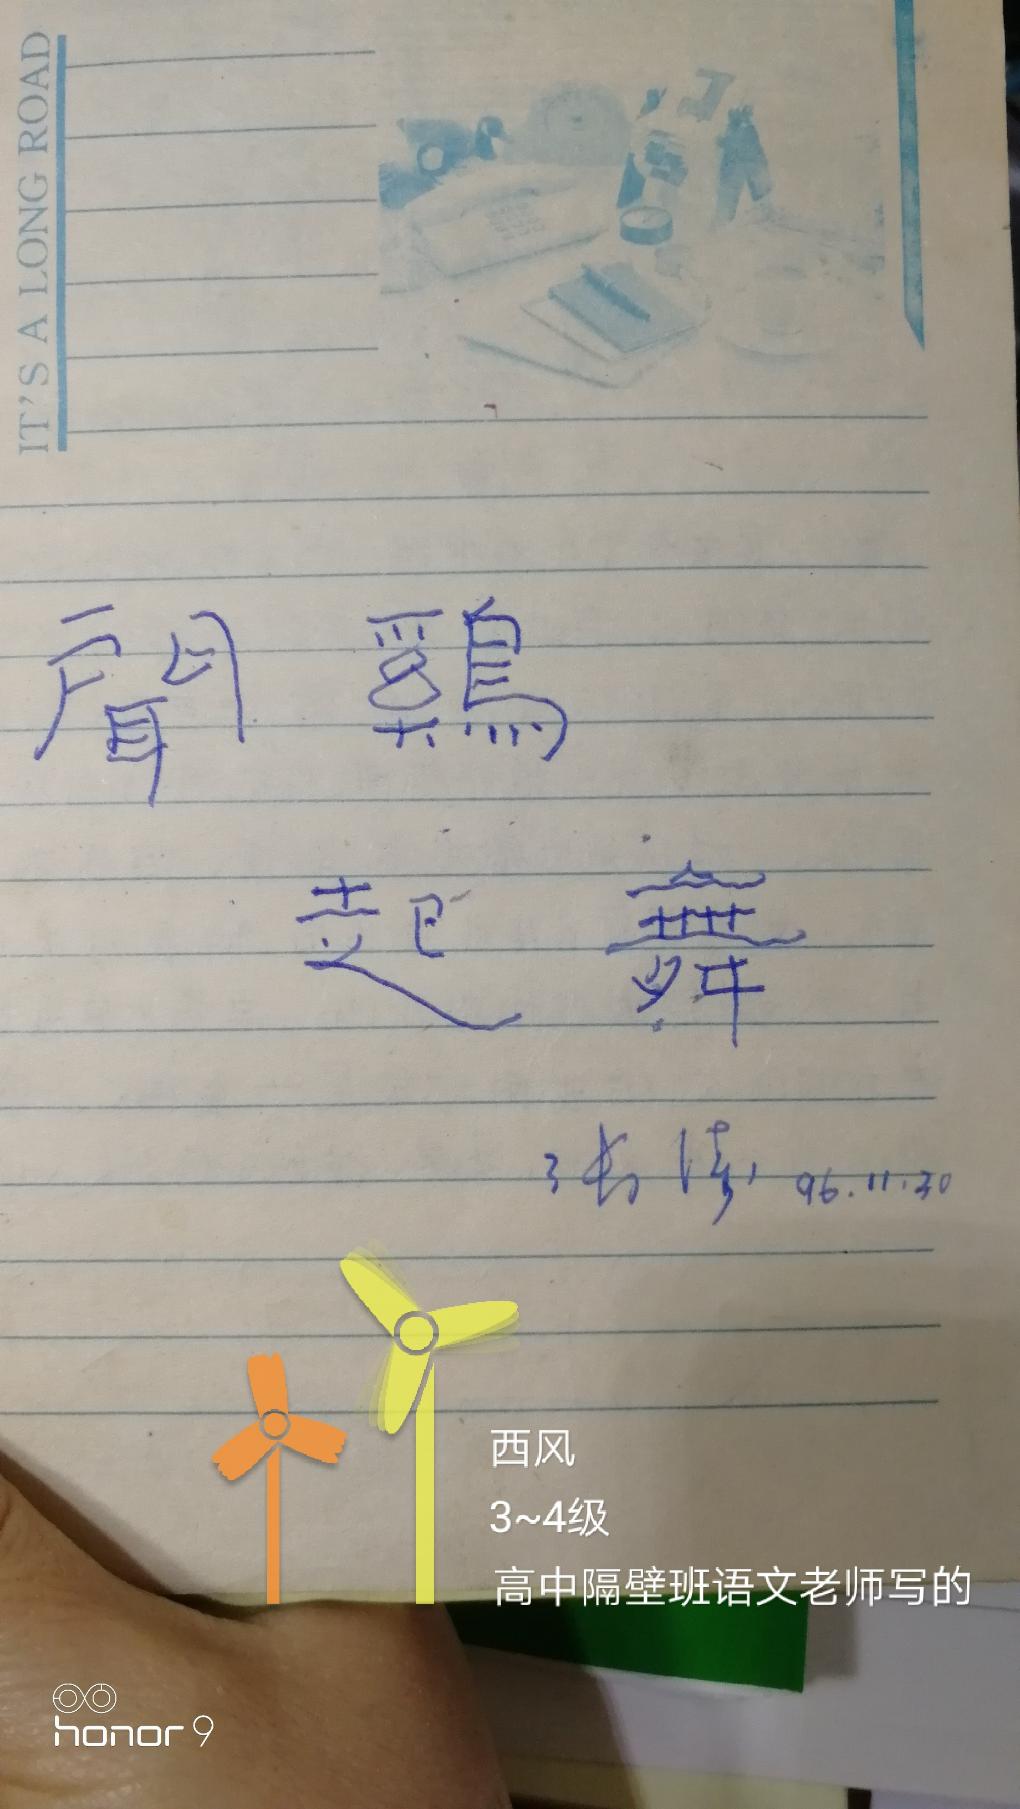 IT'S A LONG ROAD
聞鷄
起舞
96.11.30
西风
3~4级
高中隔壁班语文老师写的
honor 9